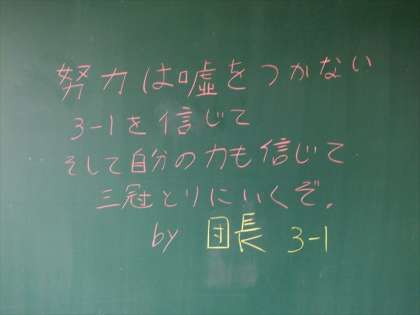 努力は嘘をつかない
3-1を信じて
そして自分の力も信じて
三冠とりにいくぞ。
by 団長 3-1